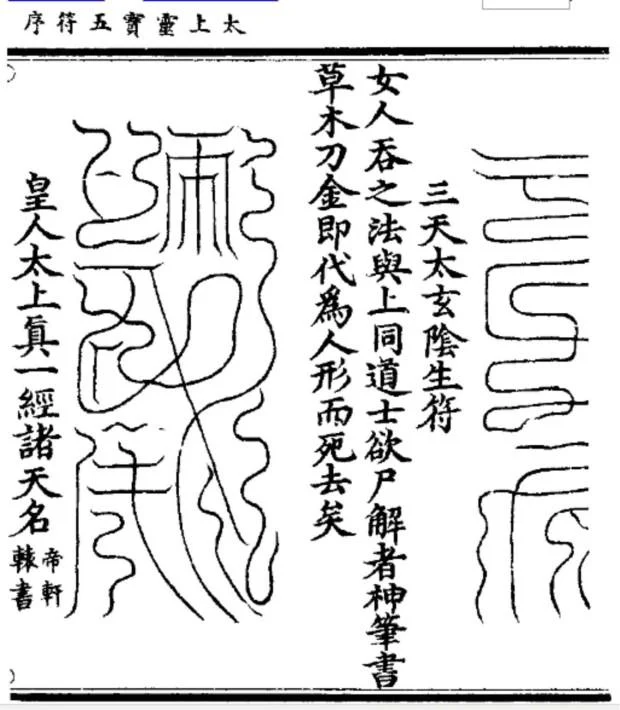 太上靈寶五符序
三天太玄陰生符
女人吞之法與上同道士欲尸解者神筆書
草木刀金即代爲人形而死去矣
皇人太上眞一經諸天名
帝軒
轅書